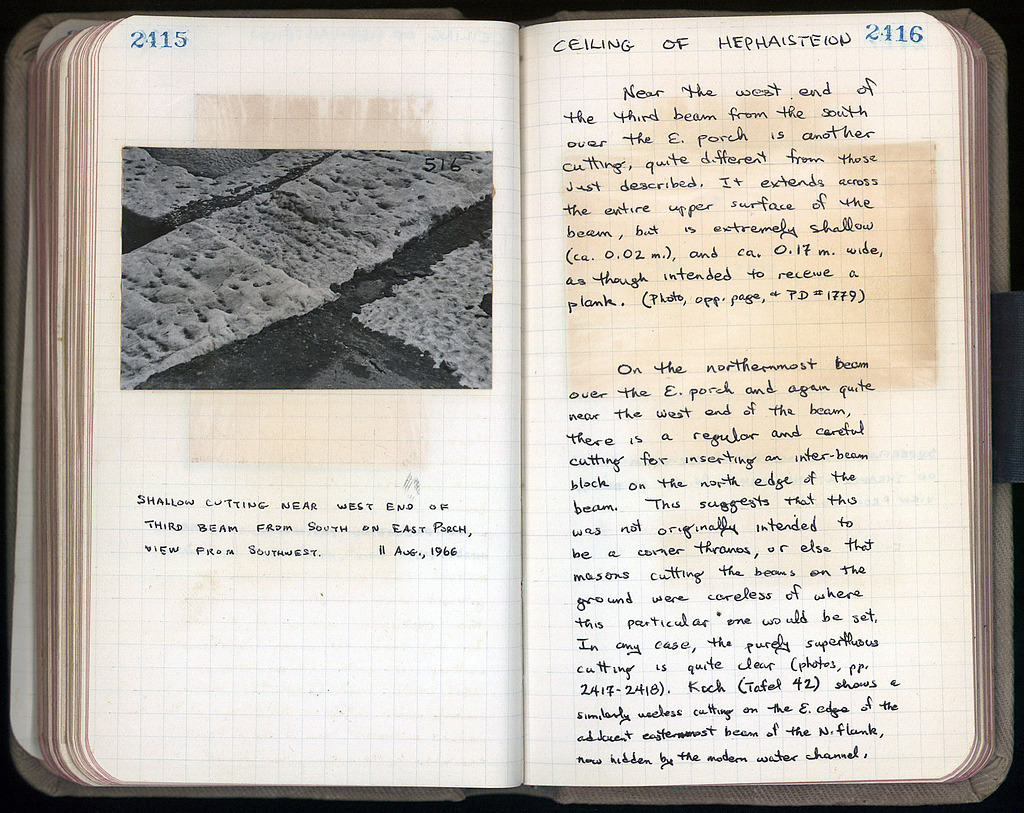 2415
516
SHALLOW CUTTING NEAR WEST END OF
THIRD BEAM FROM SOUTH ON EAST PORCH,
VIEW FROM SOUTHWEST. 11 AUG., 1966
CEILING OF HEPHAISTEION 2416
Near the west end of
the third beam from the south
over the E. porch is another
cutting, quite different from those
just described. It extends across
the entire upper surface of the
beam, but is extremely shallow
(ca. 0.02 m.), and ca. 0.17 m. wide,
as though intended to receive a
plank. (Photo, opp. page, + PD #1779)
On the northernmost beam
over the E. porch and again quite
near the west end of the beam,
there is a regular and careful
cutting for inserting an inter-beam
block on the north edge of the
beam. This suggests that this
was not originally intended to
be a corner thranos, or else that
masons cutting the beams on the
ground were careless of where
this particular one would be set.
In any case, the purely superfluous
cutting is quite clear (photos, pp.
2417-2418). Koch (Tafel 42) shows a
similarly useless cutting on the E. edge of the
adjacent easternmost beam of the N. flank,
now hidden by the modern water channel.